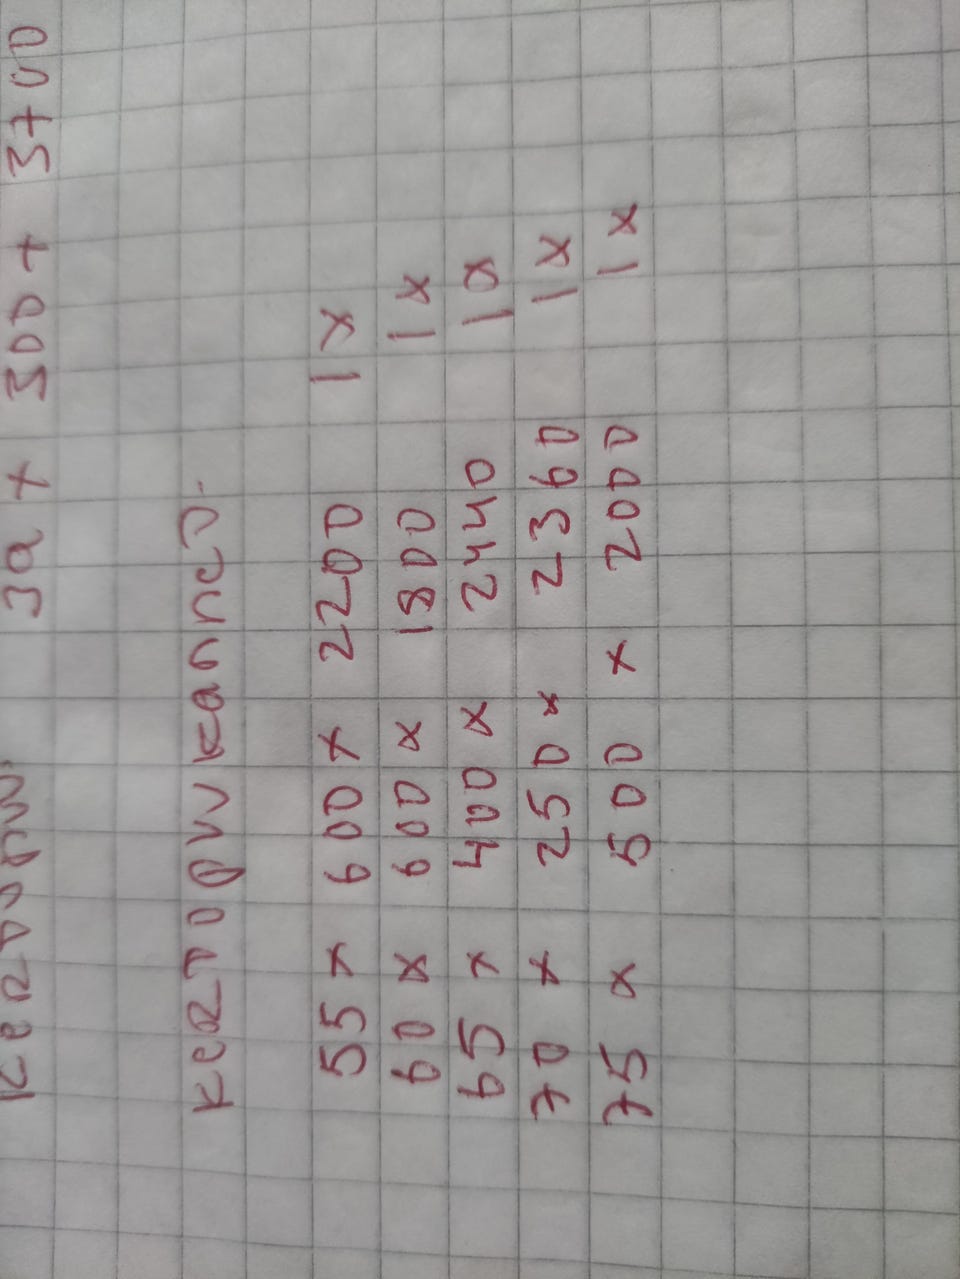 39 x 300 x 3700
kertopuu kannet.
55 x 600 x 2200 1x
60 x 600 x 1800 1x
65 x 400 x 2440 1x
70 x 250 x 2360 1x
75 x 500 x 2000 1x